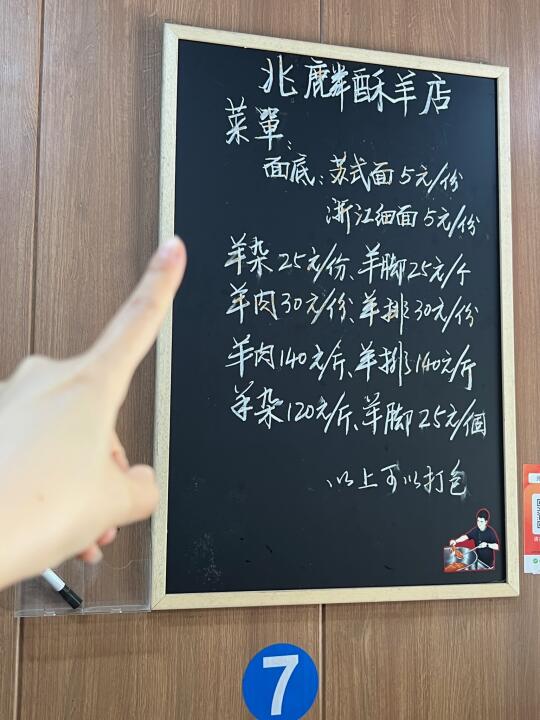 兆麟酥羊店
菜單:
面底:苏式面5元/份
浙江细面5元/份
羊杂25元/份、羊脚25元/个
羊肉30元/份、羊排30元/份
羊肉140元/斤、羊排140元/斤
羊杂120元/斤、羊脚25元/個
以上可以打包
7